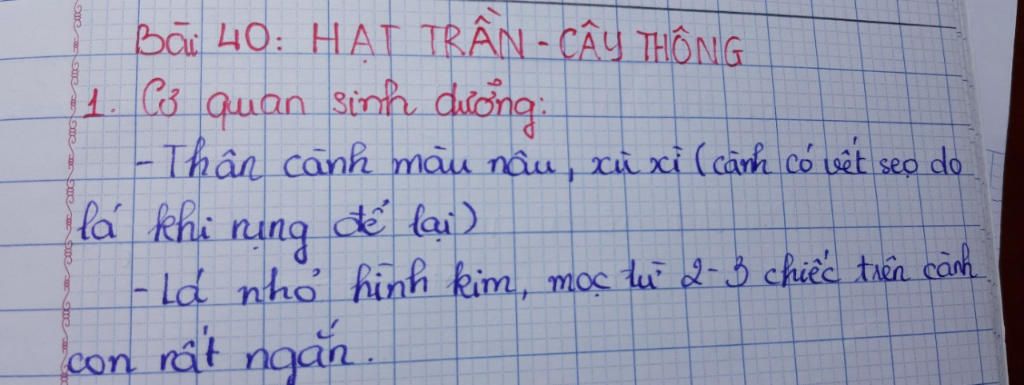 Bài 40: HẠT TRẦN - CÂY THÔNG
1. Cơ quan sinh dưỡng:
- Thân cành màu nâu, xù xì (cành có vết sẹo do
lá khi rụng để lại)
- Lá nhỏ hình kim, mọc từ 2-3 chiếc trên cành
con rất ngắn.